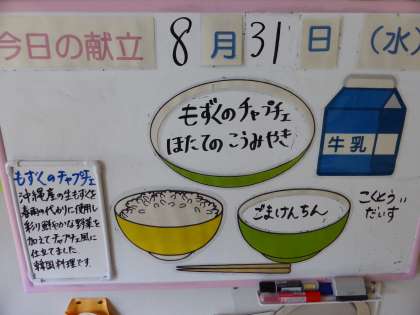 今日の献立 8月31日(水)
もずくのチャプチェ
ほたてのこうみやき
牛乳
もずくのチャプチェ
沖縄産の生もずくを
春雨の代かりに使用し
彩り鮮やかな野菜を
加えてチャプチェ風に
仕立てました
韓国料理です。
ごまけんちん
こくとう
だいず